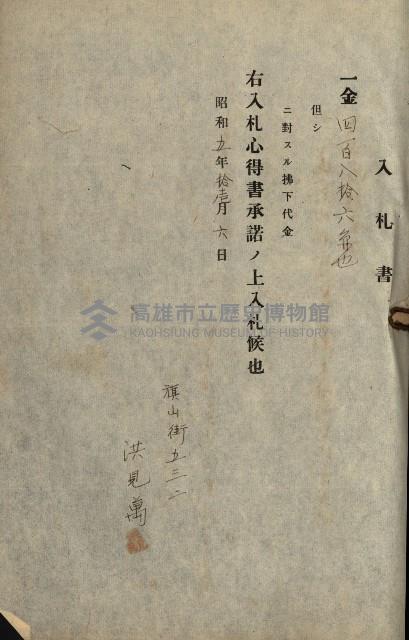 入札書
一金四百八拾六円也
但シ
ニ對スル拂下代金
右入札心得書承諾ノ上入札候也
昭和五年拾壹月六日
旗山街五三二
洪見萬
高雄市立歷史博物館
KAOHSIUNG MUSEUM OF HISTORY